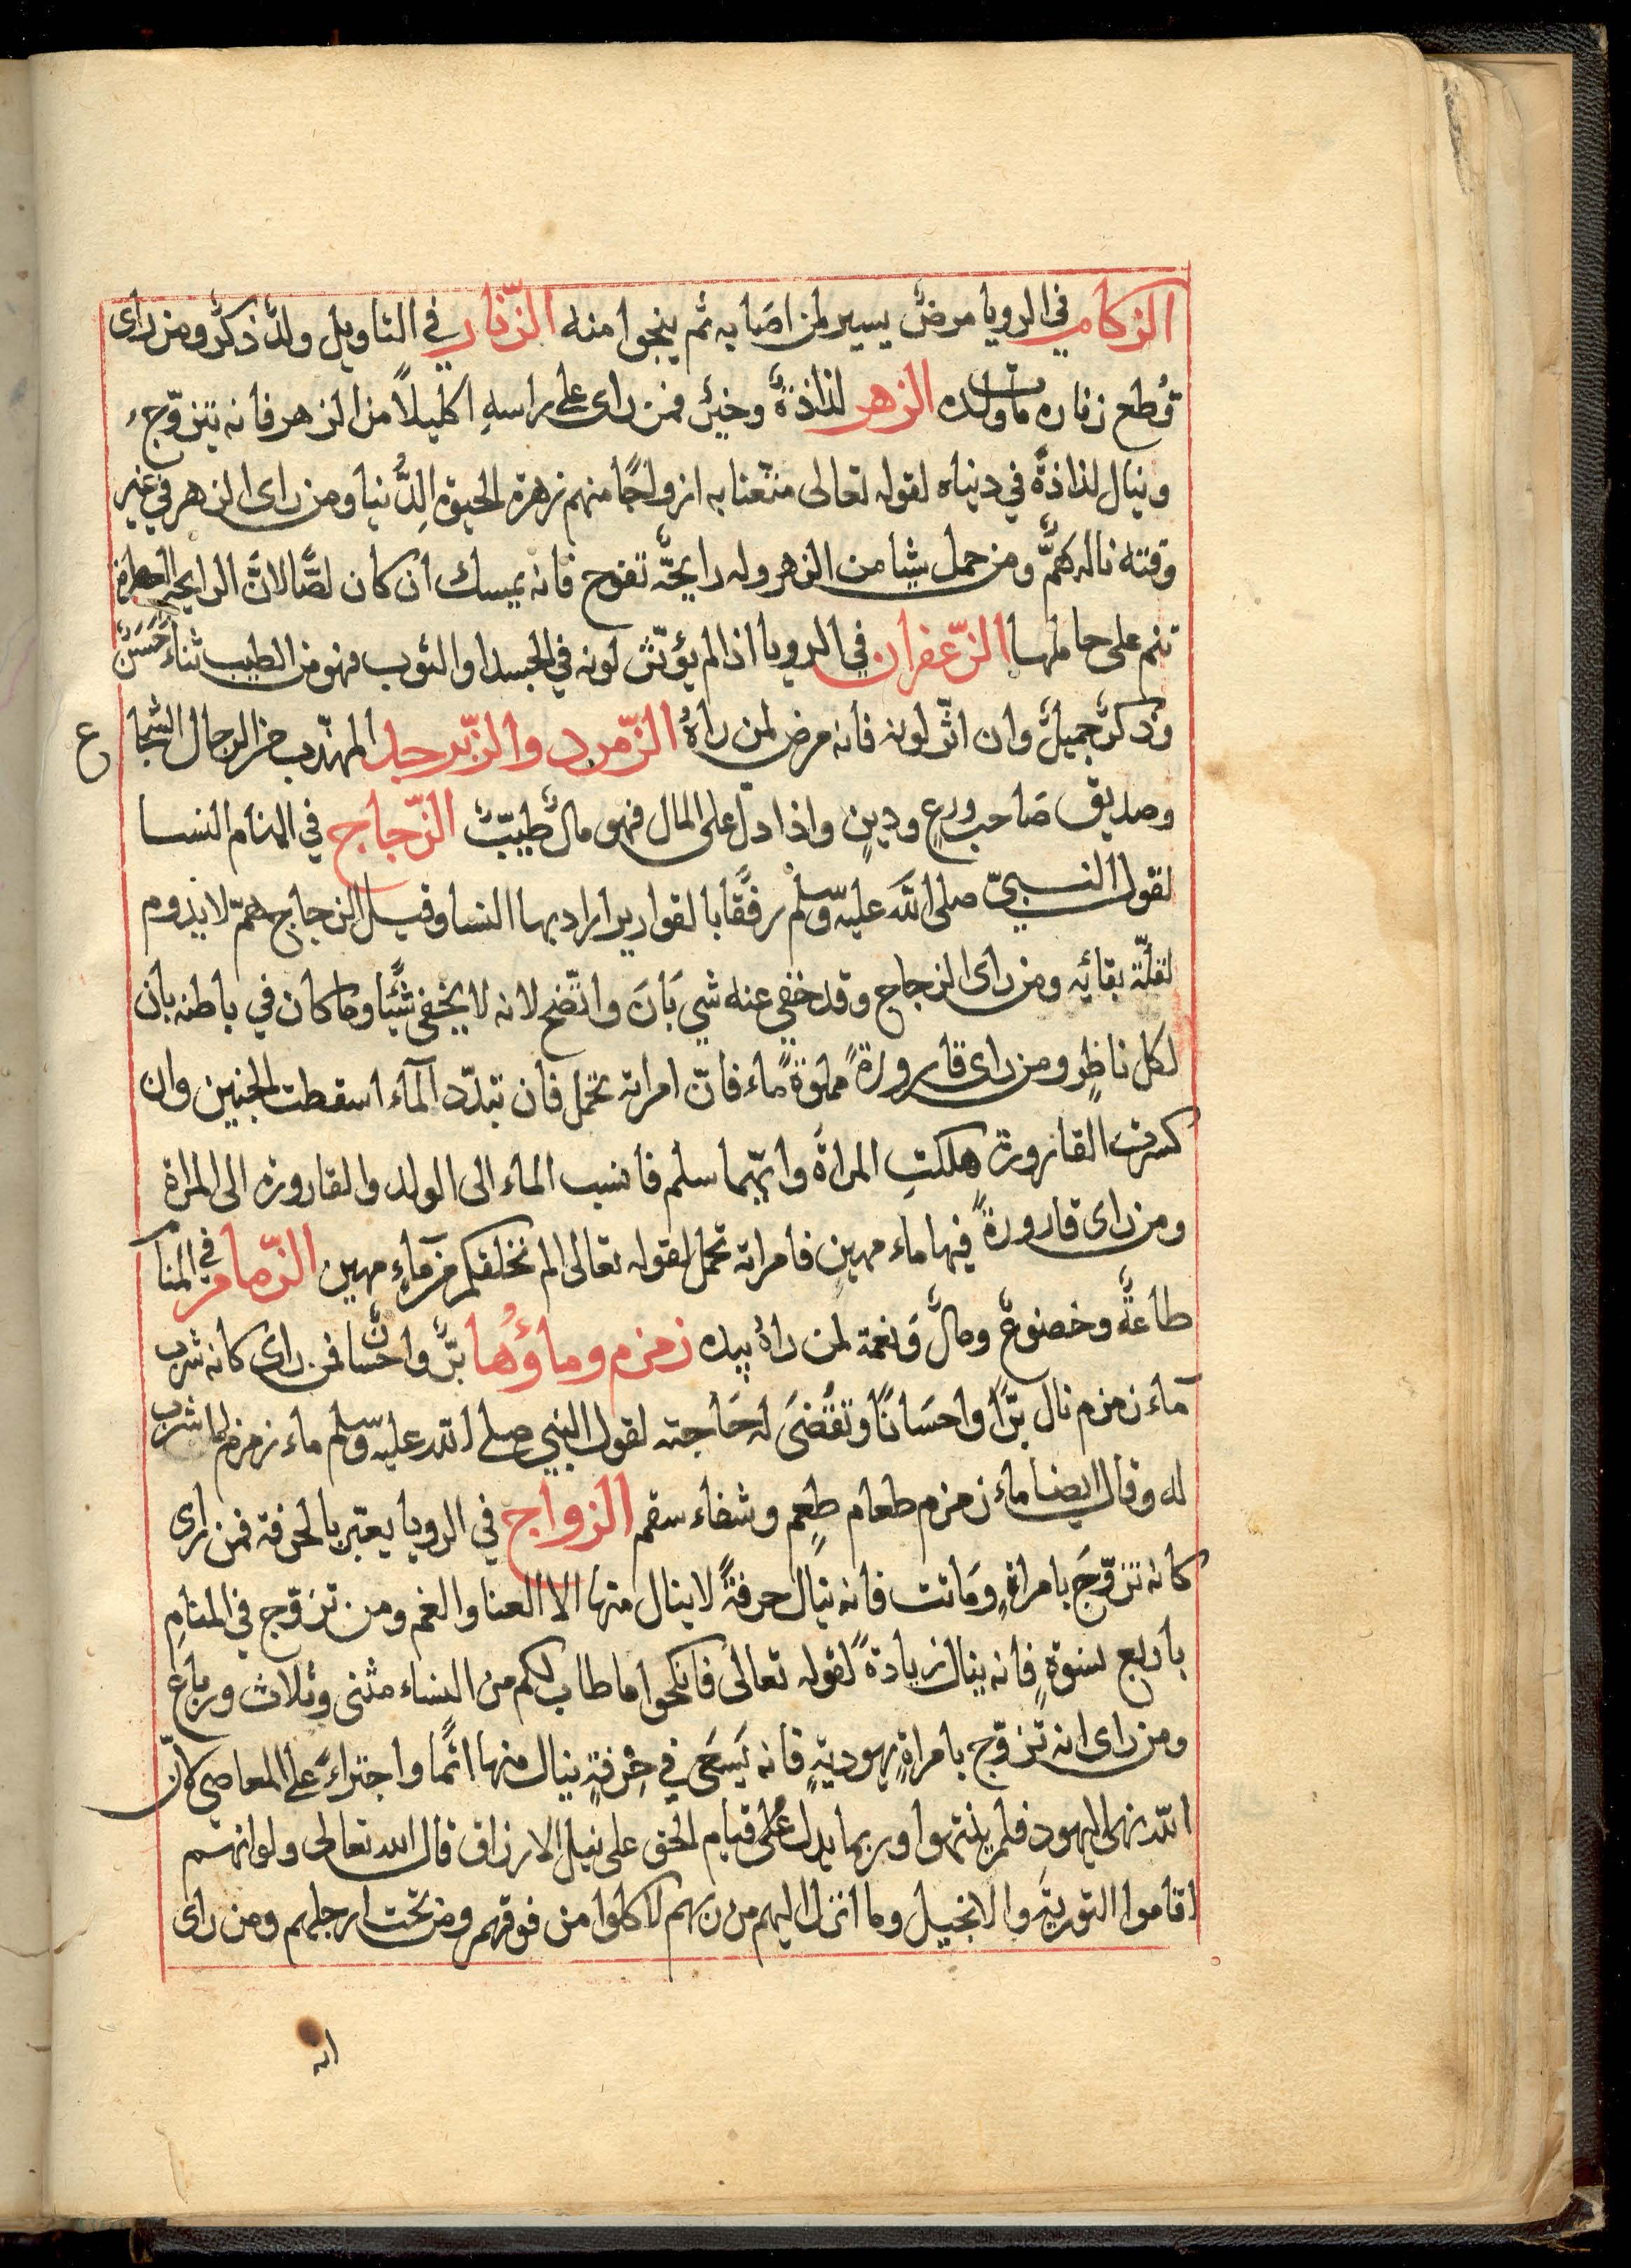 الزكام في الرويا مرضٌ يسير لمن اصَابه ثم ينجوا منه الزّنار في التاويل ولدٌ ذكرٌ ومن راى
قُطع زناره مات ولده الزهر لذاذةٌ وخيرٌ فمن راى على راسهِ اكليلاً من الزهر فانه يتزوّج
وينال لذاذةً في دنياه لقوله تعالى متّعنا به ازواجًا منهم زهرة الحيوة الدُّنيا ومن راى الزهر في غير
وقته ناله همٌّ ومن حمل شيا من الزهر وله رايحَّة تفوح فانه يمسك ان كان لصًّا لانَّ الرايحة
تنم على حاملها الزّعفران في الرويا اذا لم يؤثّر لونه في الجسد او الثوب فهو من الطيب ثناءٌ حَسَنٌ
وذكرٌ جميلٌ وان اثّر لونه فانه مرض لمن راهُ الزّمرد والزّبرجد المهذّب من الرجال الشجاع
وصديق صَاحب ورعٍ ودينٍ واذا دلّ على المال فهو مالٌ طيبٌ الزّجاج في المنام النسا
لقول النبيّ صلى اللّه عليه وسلم رفقًا بالقوارير اراد بها النسا وقيل الزجاج همّ لا يدوم
لقلّة بقائه ومن راى الزجاج وقد خفي عنه شي بَانَ واتّضح لانه لا يخفى شيًا وما كان في باطنه بان
لكل ناظرٍ ومن راى قارورةً مملوةً ماء فانّ امراته تحمل فان تبدّد المآء اسقطت الجنين وان
كسرت القارورة هلكتِ المراةَ وايّهما سلم فانسب الماء الى الولد والقارورة الى المراة
ومن راى قارورةً فيها ماء مهينٍ فامراته تحمل لقوله تعالى الم نخلقكم من مآءٍ مهين الزّمام في المنام
طاعةٌ وخضوعٌ ومالٌ ونعمة لمن راهُ بيده زمزم وماؤُها برٌّ واحسانٌ فمن راى كانه شرب
مآء زمزم نال برًّا واحسَانًا وتقضَى له حَاجته لقول النبي صلى اللّه عليه وسلم ماء زمزم لما شرب
له وقال ايضا ماء زمزم طعام طعمٍ وشفاء سقم الزواج في الرويا يعبّر بالحرفة فمن راى
كانه تزوّجَ بامراةٍ ومَاتت فانه ينال حرفةً لا ينال منها الا العنا والغم ومن تزوّج في المنامِ
باربع نسوةٍ فانه ينال زيادةً لقوله تعالى فانكحوا ما طاب لكم من النساء مثنى وثلاث ورباع
ومن راى انه تزوّج بامراةٍ يهوديةٍ فانه يَسعَى في حِرفةٍ ينال منها اثمًا واجتراءً على المعاصي كانّ
اللّه نهى اليهود فلم ينتهوا وربما يدلّ على قيام الحق على نيل الارزاق قال الله تعالى ولو انهم
اقاموا التوريَة والانجيل وما انزل اليهم من ربهم لاكلوا من فوقهم ومن تحت ارجلهم ومن راى
انه